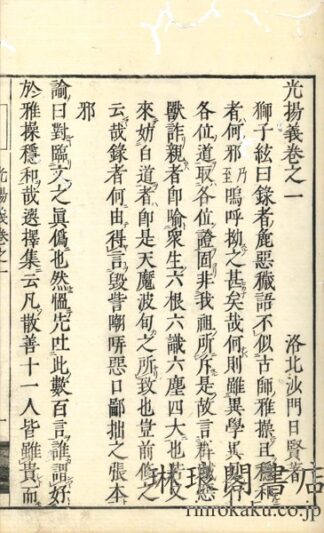 光揚義卷之一
洛北沙門日賢著
獅子絃曰錄者麁惡穢語不似古師雅操且穩和
者何邪乃至嗚呼拗之甚矣哉何則雖異學其
各位道取各位證固非我祖所斥是故言群賊惡
獸詐親者即喻衆生六根六識六塵四大也若又
來妨白道者即是天魔波旬之所致也豈前脩之
云哉錄者何由得言毀訾嘲哢惡口鄙拙之張本
邪
諭曰對臨文之眞僞也然慍先吐此數百言誰謂好
於雅操穩和哉選擇集云凡散善十一人皆雖貴而
光揚義卷之一
琳琅閣書店
rinrokaku.co.jp